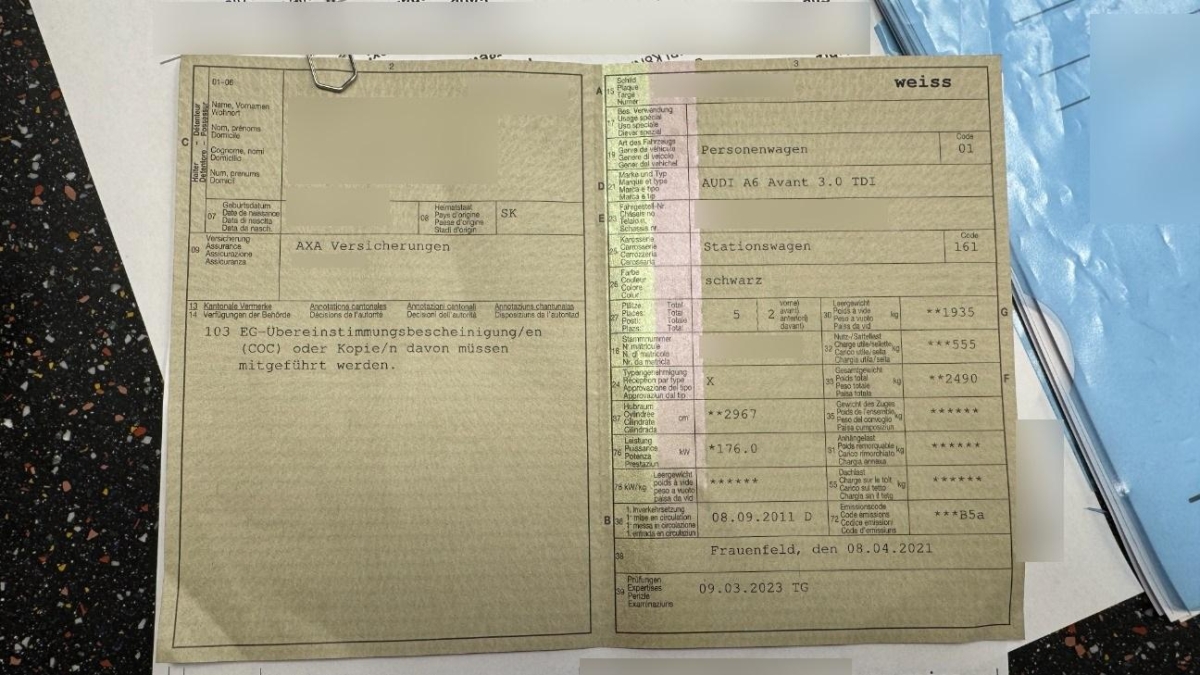 2
01-06
Name, Vornamen
Wohnort
Nom, prénoms
Domicile
Cognome, nomi
Domicilio
Num, prenums
Domicil
C
07
Geburtsdatum
Date de naissance
Data di nascita
Data da nasch.
08
Heimatstaat
Pays d'origine
Paese d'origine
Stadi d'origin
SK
09
Versicherung
Assurance
Assicurazione
Assicuranza
AXA Versicherungen
13 Kantonale Vermerke Annotations cantonales Annotazioni cantonali Annotaziuns chantunalas
14 Verfügungen der Behörde Décisions de l'autorité Decisioni dell'autorità Disposiziuns da l'autoritad
103 EG-Übereinstimmungsbescheinigung/en
(COC) oder Kopie/n davon müssen
mitgeführt werden.
3
A
15
Schild
Plaque
Targa
Numer
weiss
17
Bes. Verwendung
Usage spécial
Uso speciale
Diever spezial
19
Art des Fahrzeugs
Genre de véhicule
Genere di veicolo
Gener dal vehichel
Personenwagen
Code
01
D
21
Marke und Typ
Marque et type
Marca e tipo
Marca e tip
AUDI A6 Avant 3.0 TDI
E
23
Fahrgestell-Nr.
Châssis no
Telaio n.
Schassis nr.
25
Karosserie
Carrosserie
Carrozzeria
Carossaria
Stationswagen
Code
161
26
Farbe
Couleur
Colore
Colur
schwarz
27
Plätze: Total
Places: Total
Posti: Totale
Plazs: Total
5
2
vorne)
avant)
anteriori)
davant)
30
Leergewicht
Poids à vide
Peso a vuoto
Paisa da vid
kg
**1935
G
18
Stammnummer
N. matricule
N. di matricola
Nr. da matricla
32
Nutz-/Sattellast
Charge utile/sellette
Carico utile/sella
Chargia utila/sella
kg
***555
24
Typengenehmigung
Réception par type
Approvazione del tipo
Approvaziun dal tip
X
33
Gesamtgewicht
Poids total
Peso totale
Paisa totala
kg
**2490
F
37
Hubraum
Cylindrée
Cilindrata
Cilindrada
cm³
**2967
35
Gewicht des Zuges
Poids de l'ensemble
Peso del convoglio
Paisa cumposiziun
kg
******
76
Leistung
Puissance
Potenza
Prestaziun
kW
*176.0
31
Anhängelast
Poids remorquable
Carico rimorchiato
Chargia annexa
kg
******
78 kW/kg
Leergewicht
poids à vide
peso a vuoto
paisa da vid
******
55
Dachlast
Charge sur le toit
Carico sul tetto
Chargia sin il tetg
kg
******
B
36
1. Inverkehrsetzung
1re mise en circulation
1a messa in circolazione
1. entrada en circulaziun
08.09.2011 D
72
Emissionscode
Code émissions
Codice emissioni
Code d'emissiuns
***B5a
38
Frauenfeld, den 08.04.2021
39
Prüfungen
Expertises
Perizie
Examinaziuns
09.03.2023 TG